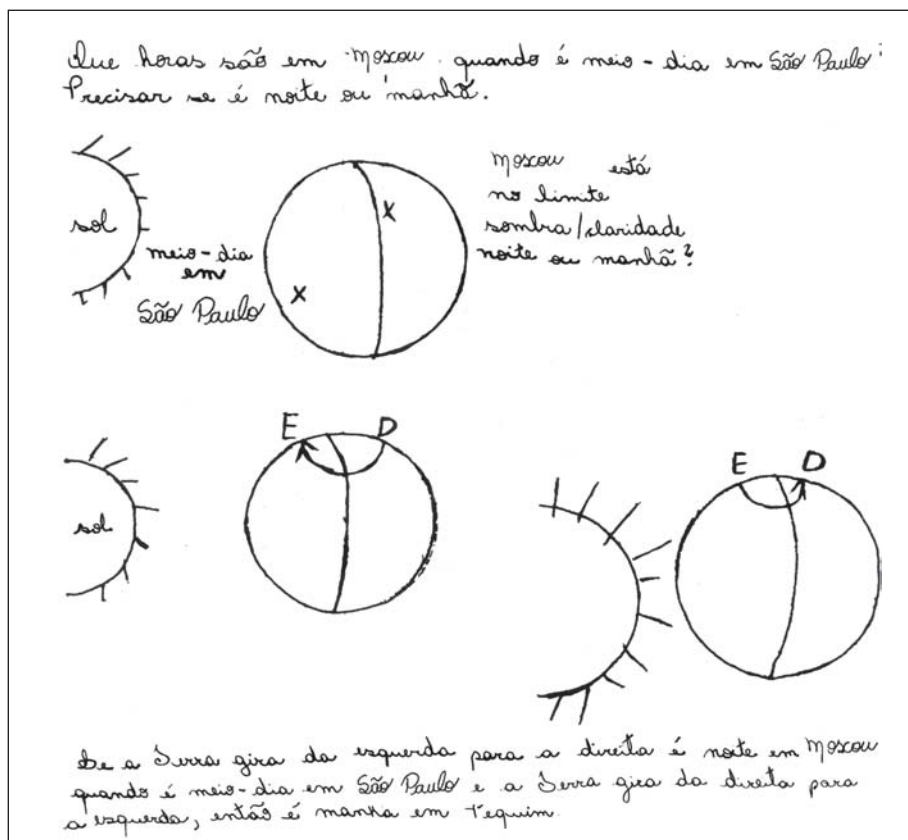 Que horas são em Moscou quando é meio-dia em São Paulo?
Precisar se é noite ou manhã.
sol
meio-dia
em
São Paulo
x
x
Moscou está
no limite
sombra/claridade
noite ou manhã?
E D
sol
E D
Se a Terra gira da esquerda para a direita é noite em Moscou
quando é meio-dia em São Paulo e a Terra gira da direita para
a esquerda, então é manha em Pequim.